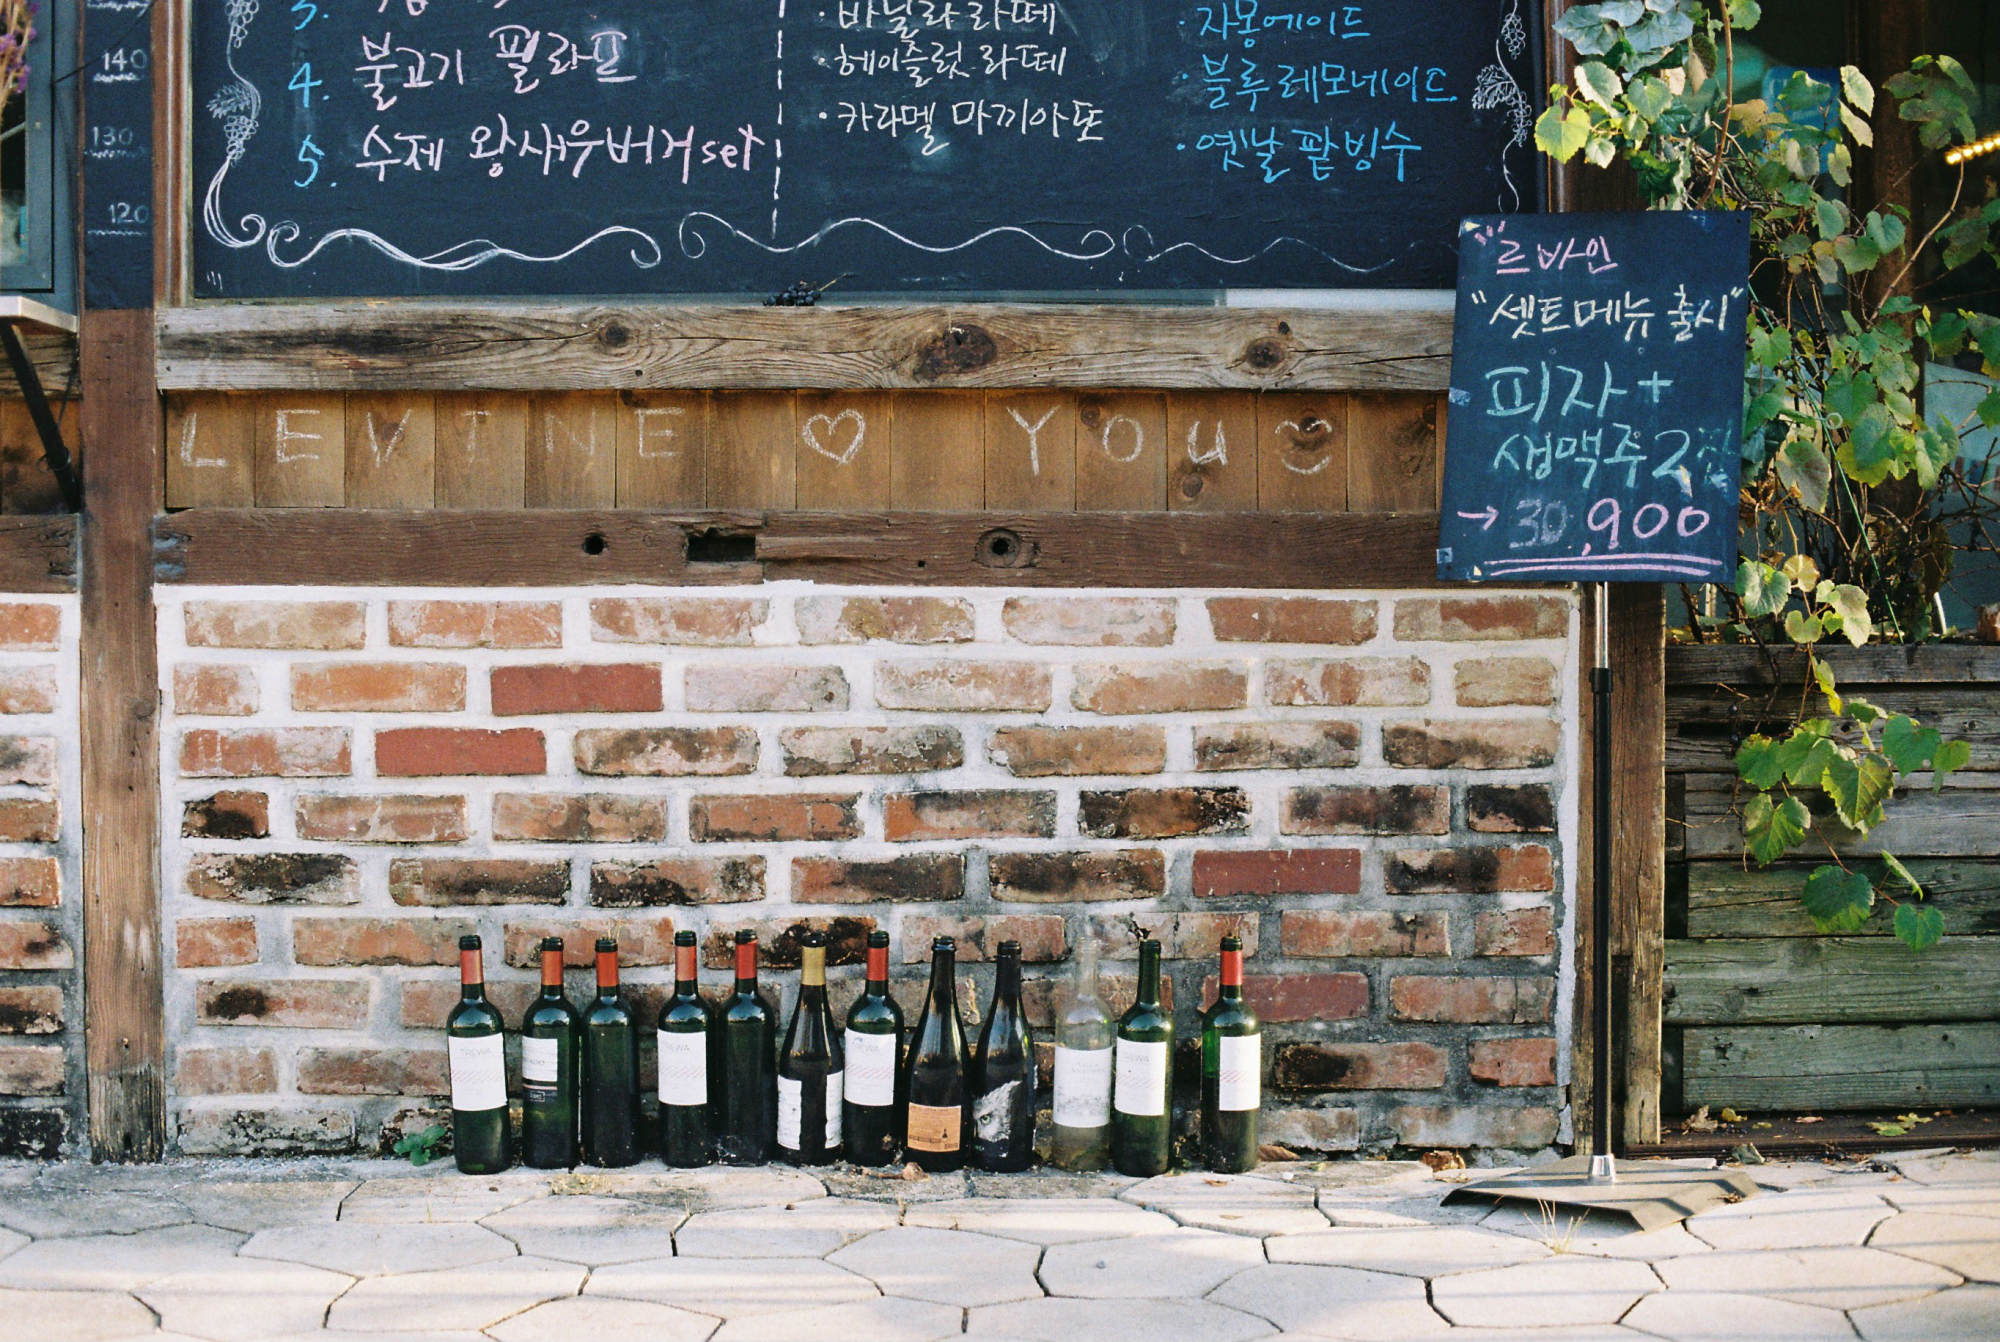 140
130
120
3.
4. 불고기 필라프
5. 수제 왕새우버거 set
· 바닐라 라떼
· 헤이즐럿 라떼
· 카라멜 마끼아또
· 자몽에이드
· 블루레모네이드
· 옛날 팥빙수
LEVINE ♡ YOU
르바인
"셋트메뉴 출시"
피자 +
생맥주 2잔
→ 30,900